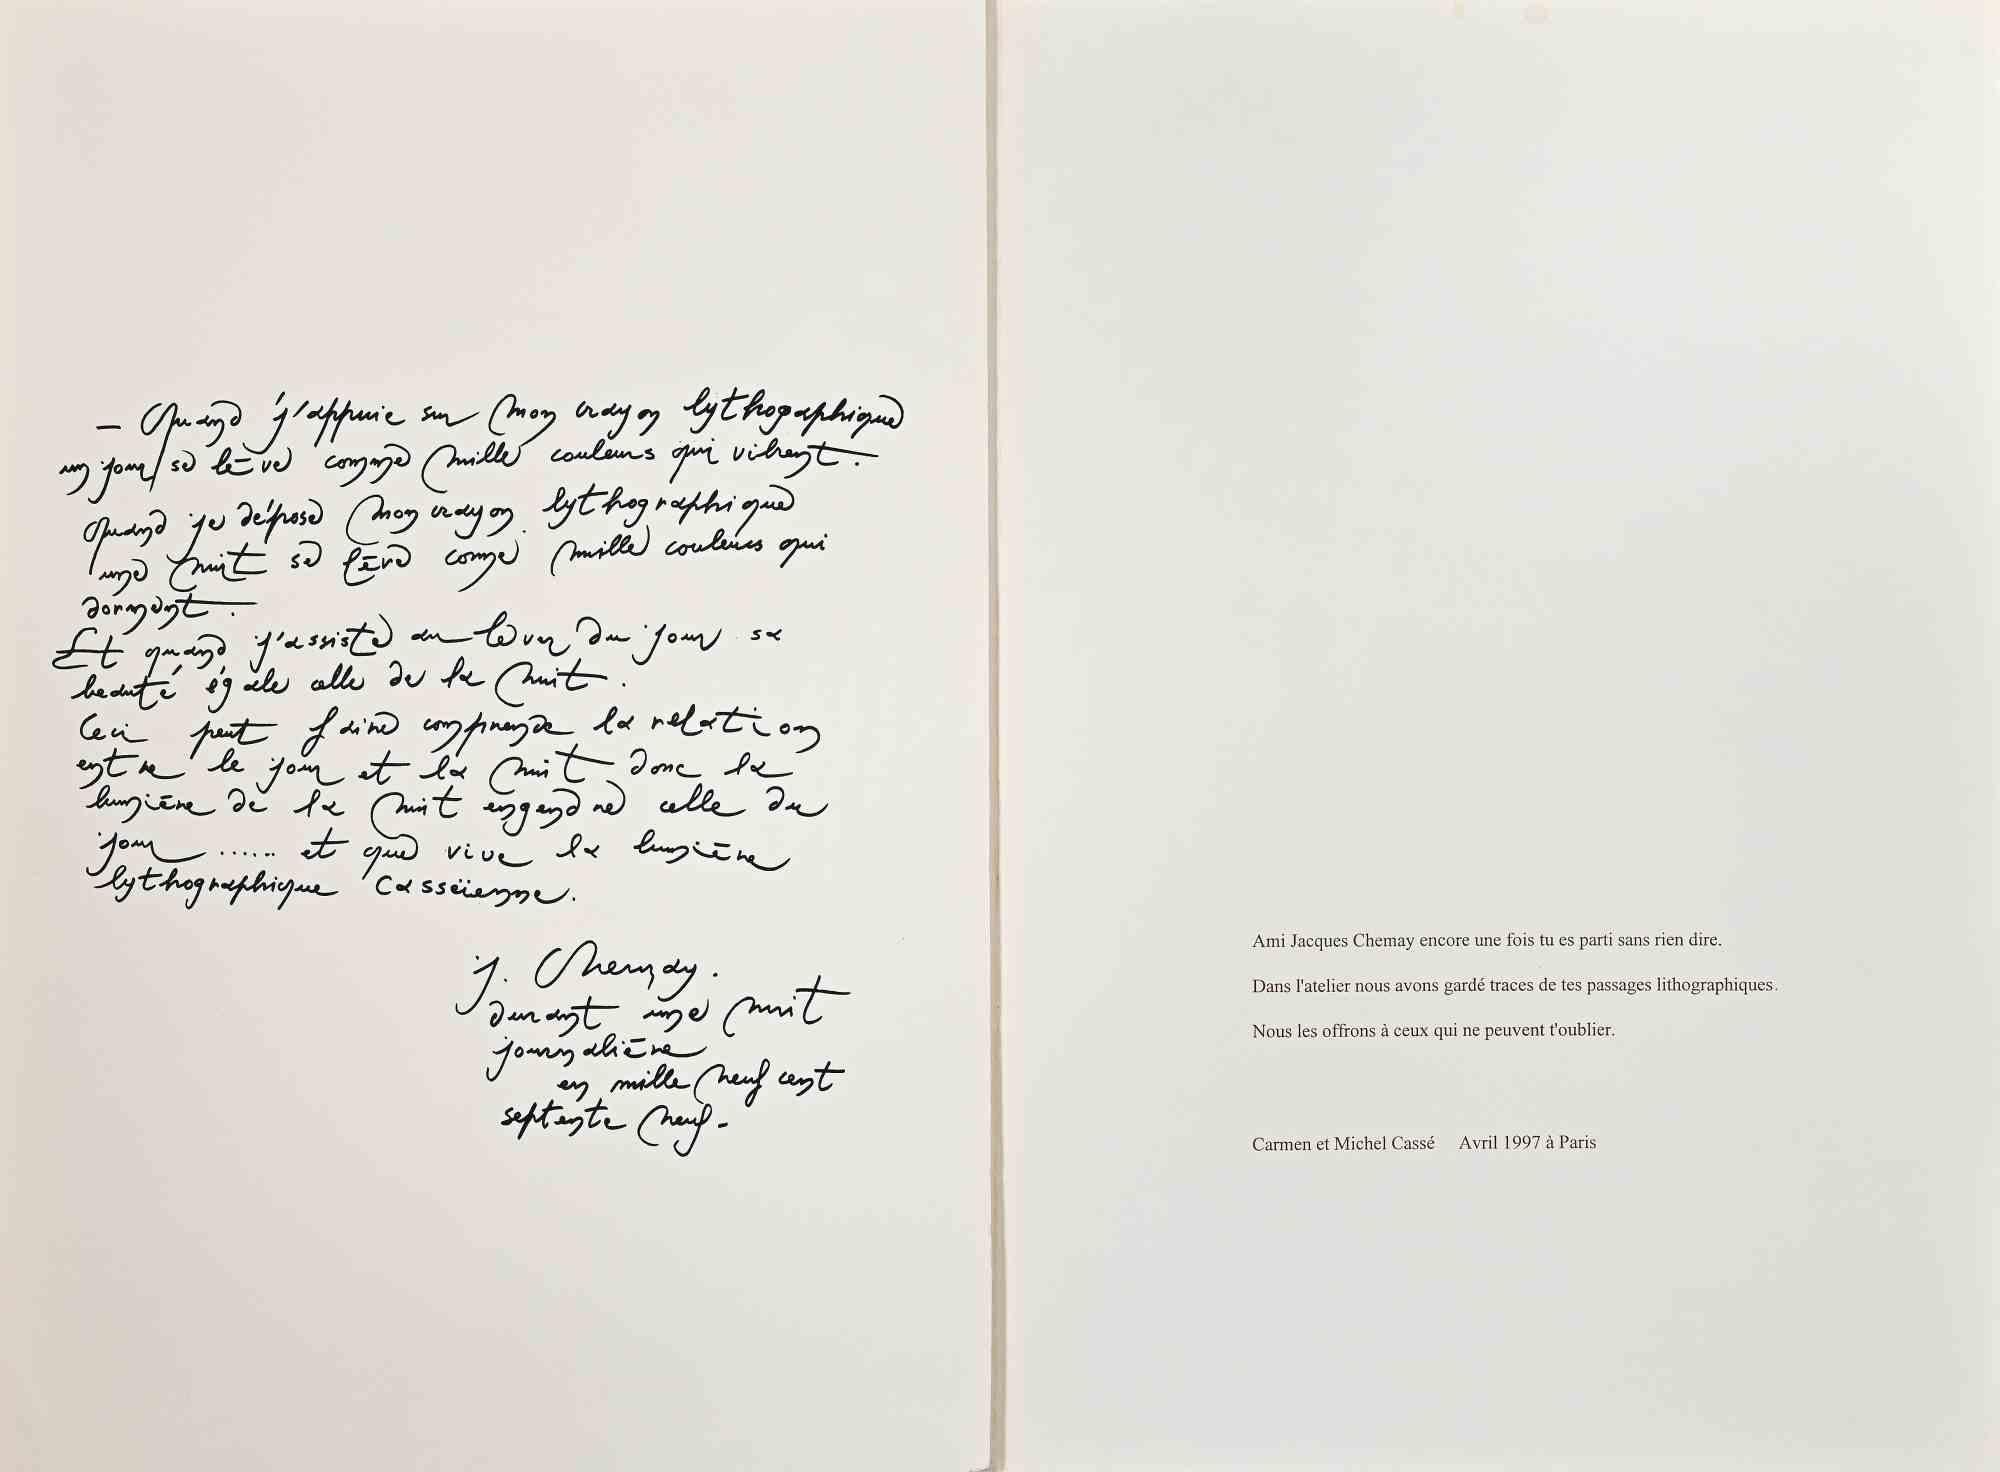 – Quand j'appuie sur mon crayon lythographique
un jour se lève comme mille couleurs qui vibrent.
Quand je dépose mon crayon lythographique
une nuit se lève comme mille couleurs qui
dorment.
Et quand j'assiste au lever du jour sa
beauté égale celle de la nuit.
Ceci peut faire comprendre la relation
entre le jour et la nuit donc la
lumière de la nuit engendre celle du
jour ...... et que vive la lumière
lythographique Casséienne.
J. Chemay.
durant une nuit
journalière
en mille neuf cent
septente neuf -
Ami Jacques Chemay encore une fois tu es parti sans rien dire.
Dans l'atelier nous avons gardé traces de tes passages lithographiques.
Nous les offrons à ceux qui ne peuvent t'oublier.
Carmen et Michel Cassé Avril 1997 à Paris